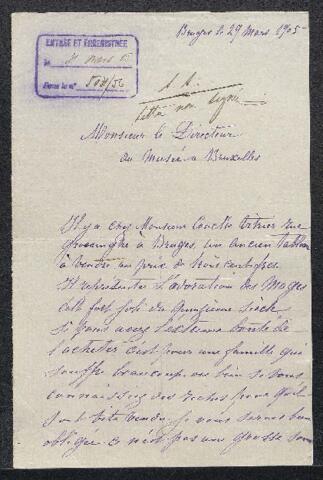 Bruges le 29 Mars 1905
ENTRÉE ET ENREGISTRÉE
le 31 mars 05
sous le n° 508/56
S. R.
lettre non signée
Monsieur le Directeur
au Musée a Bruxelles
Il y a chez Monsieur vitrier rue
a Bruges, un ancien tableau
à vendre au prix de trois cent frcs.
Il représente l'adoration des Mages
cest fort joli du quinzieme siècle
si vous avez l'extreme bonté de
l'acheter c'est pour une famille qui
souffre beaucoup ou bien si vous
connaissez des riches pour quil
soit vite vendu je vous serais bien
obligée ce n'est pas une grosse somme